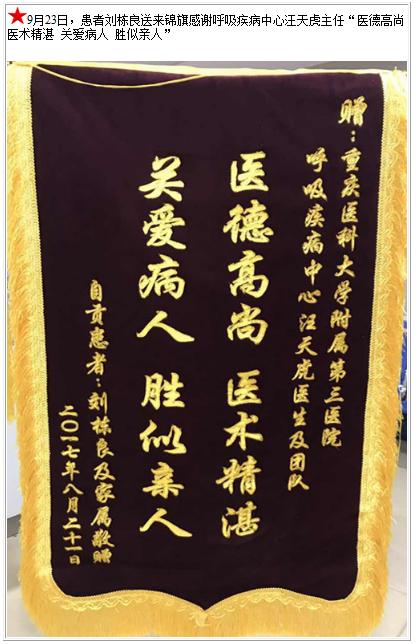 ★9月23日，患者刘栋良送来锦旗感谢呼吸疾病中心汪天虎主任“医德高尚
医术精湛 关爱病人 胜似亲人”
赠：重庆医科大学附属第三医院
呼吸疾病中心汪天虎医生及团队
医德高尚 医术精湛
关爱病人 胜似亲人
自贡患者：刘栋良及家属敬赠
二〇一七年八月二十一日